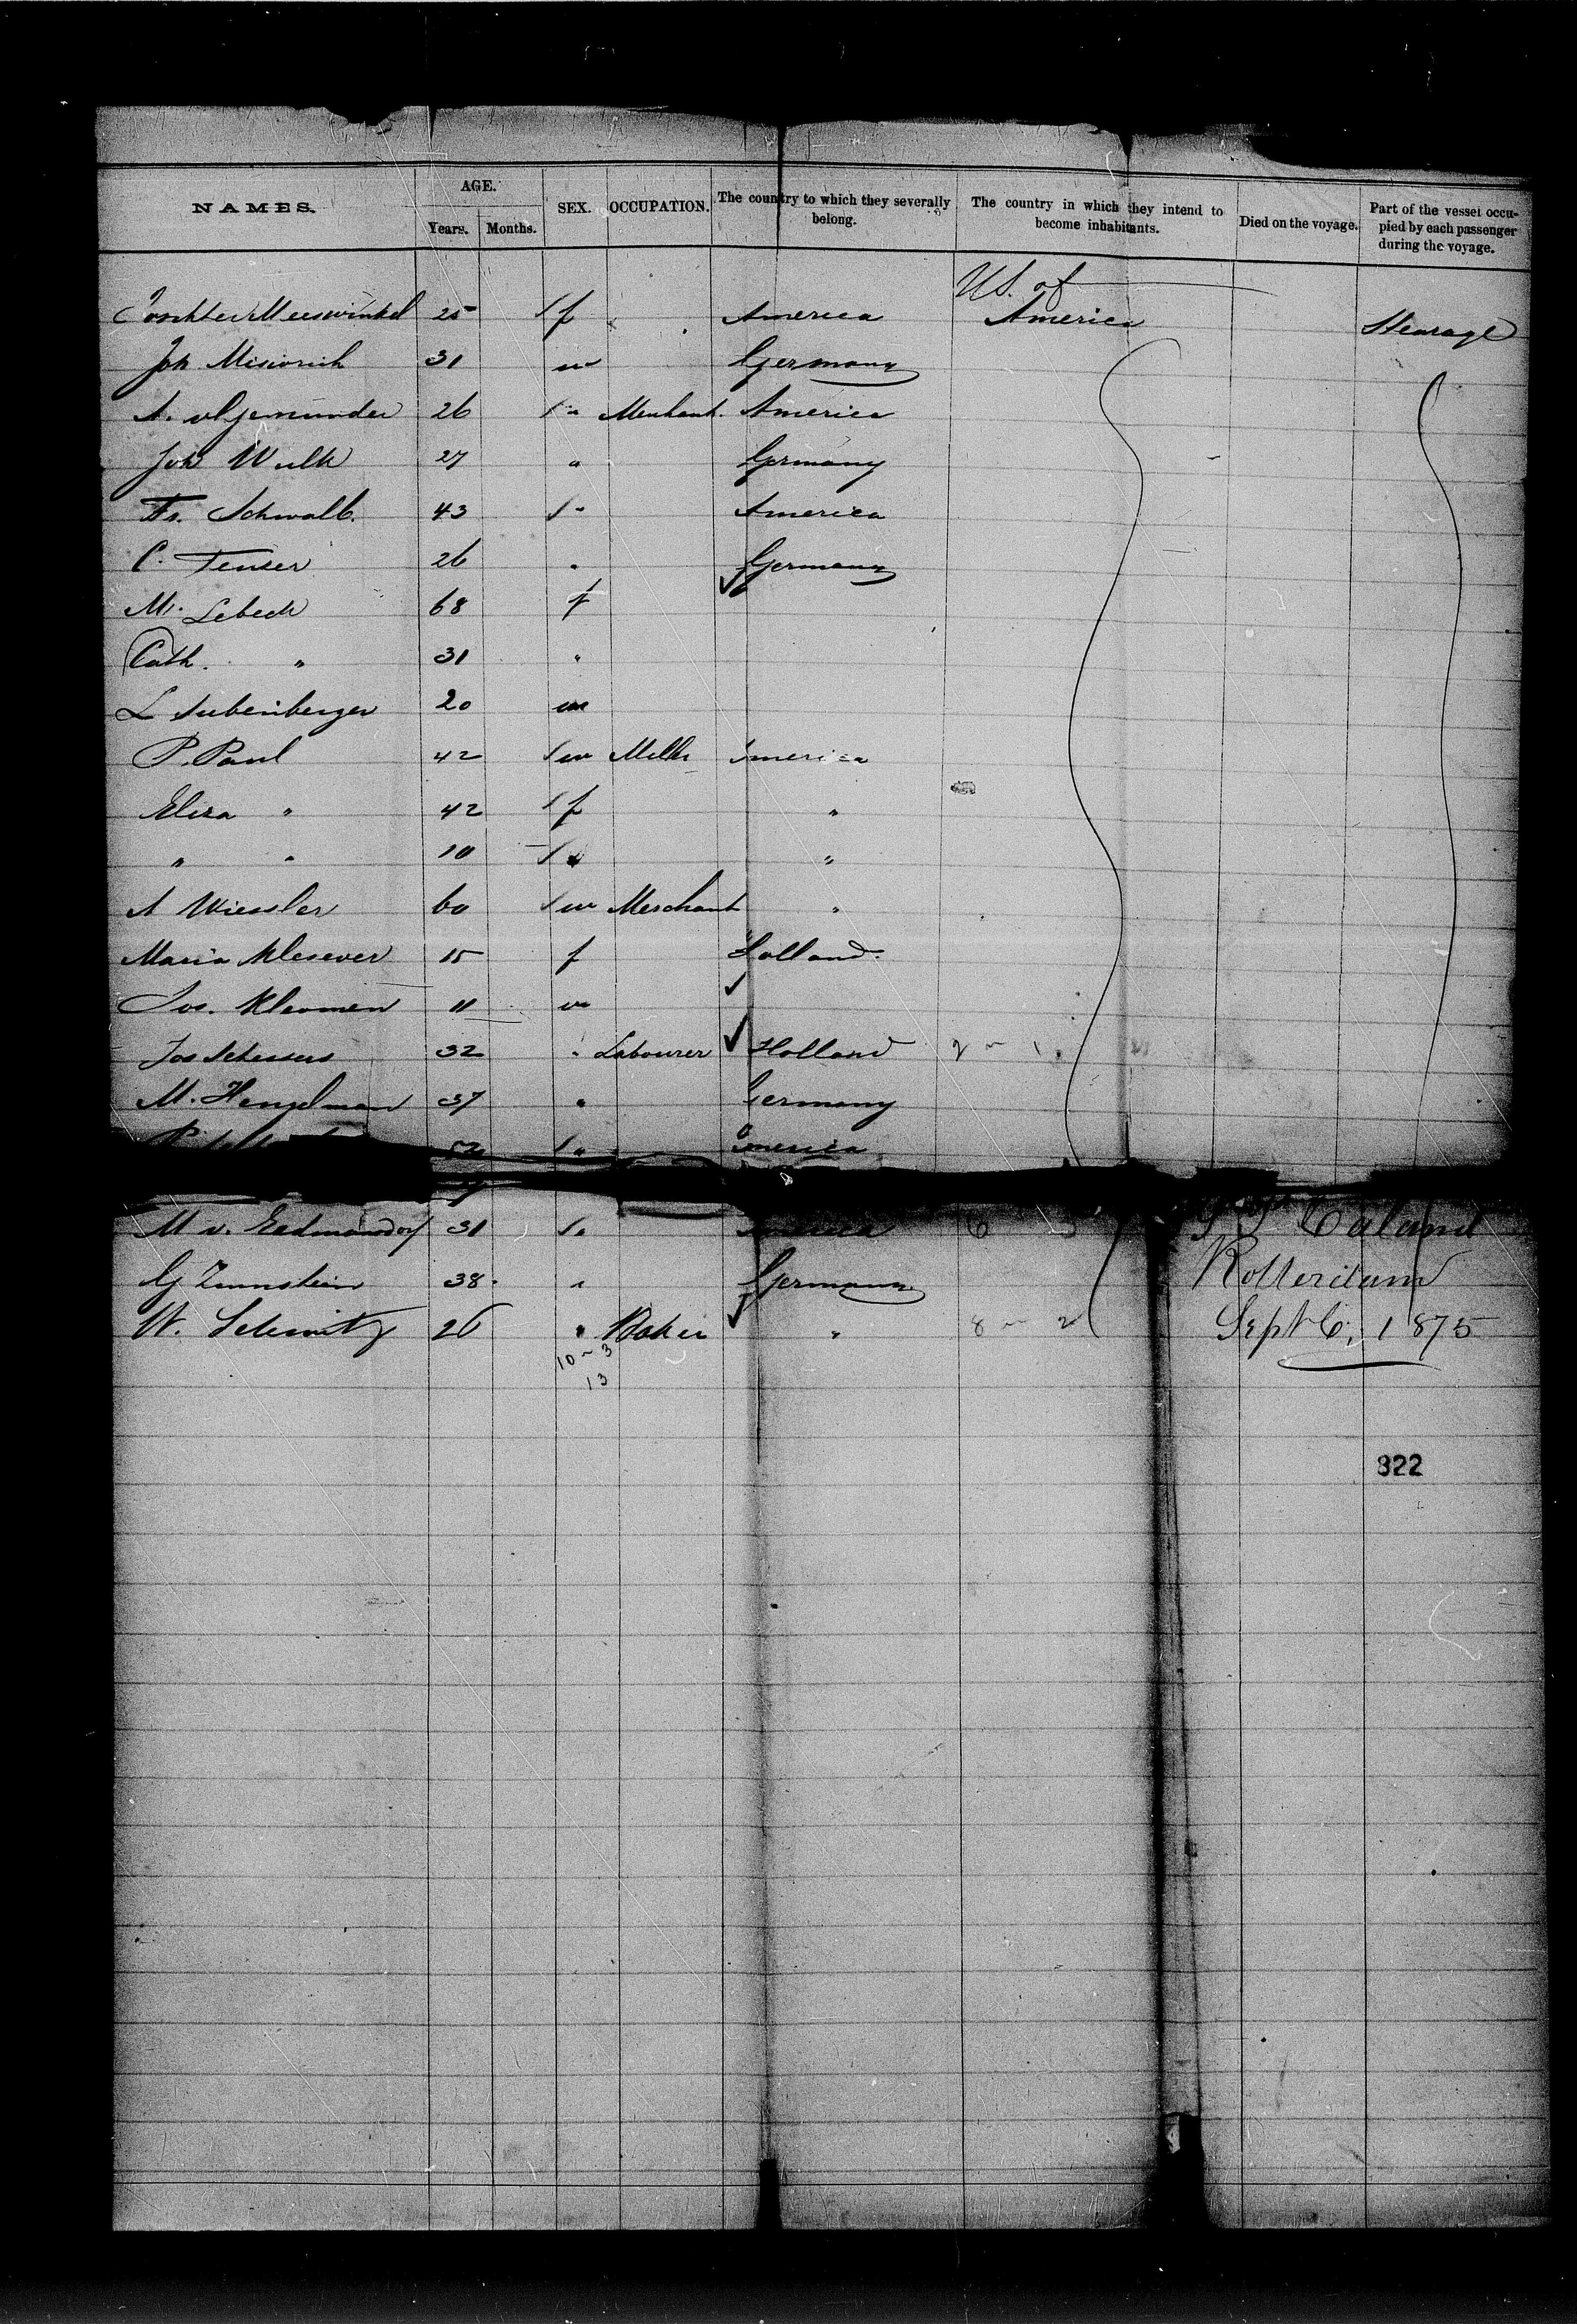 NAMES. AGE. Years. Months. SEX. OCCUPATION. The country to which they severally belong. The country in which they intend to become inhabitants. Died on the voyage. Part of the vessel occupied by each passenger during the voyage.
U.S. of
Meeswinkel 25 f America America Stearage
Joh 31 m Germany
A. v Gemünder 26 " Merchant. America
Joh Wulk 27 " Germany
Fr. Schwalb. 43 " America
C. Tenser 26 " Germany
M. Lebeck 68 f
Cath. " 31 "
L Siebenberger 20 m
P. Paul 42 m America
Eliza " 42 f "
" " 10 " "
A Wiessler 60 m Merchant "
Maria 15 f Holland.
Jos. 11 m
Jos 32 " Labourer Holland
M. Hengelman 37 " Germany
52 " America
M v. 31 " America Caland
G Zinnstein 38. " Germany Rotterdam
W. Schmitz 26 " Baker " 8 - 2 Sept 6, 1875
10 - 3
13
322